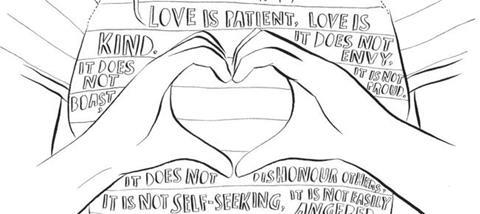 LOVE IS PATIENT, LOVE IS
KIND. IT DOES NOT
ENVY,
IT DOES IT IS NOT
NOT PROUD.
BOAST,
IT DOES NOT DISHONOUR OTHERS,
IT IS NOT SELF-SEEKING, IT IS NOT EASILY
ANGERED